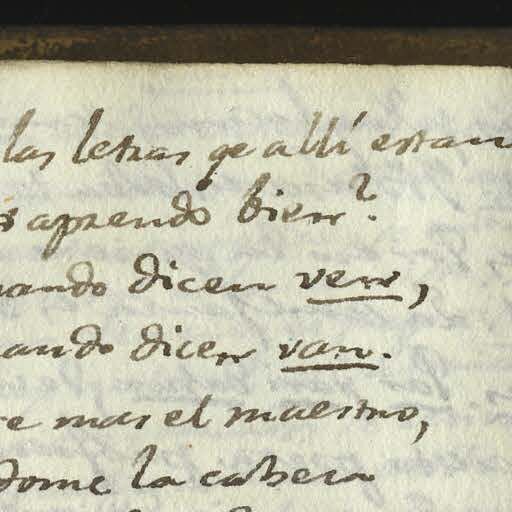 las letras qe allí estan
aprendo bien?
ando dicen ven,
ando dicen van.
e mas el maestro,
dome la cabeza